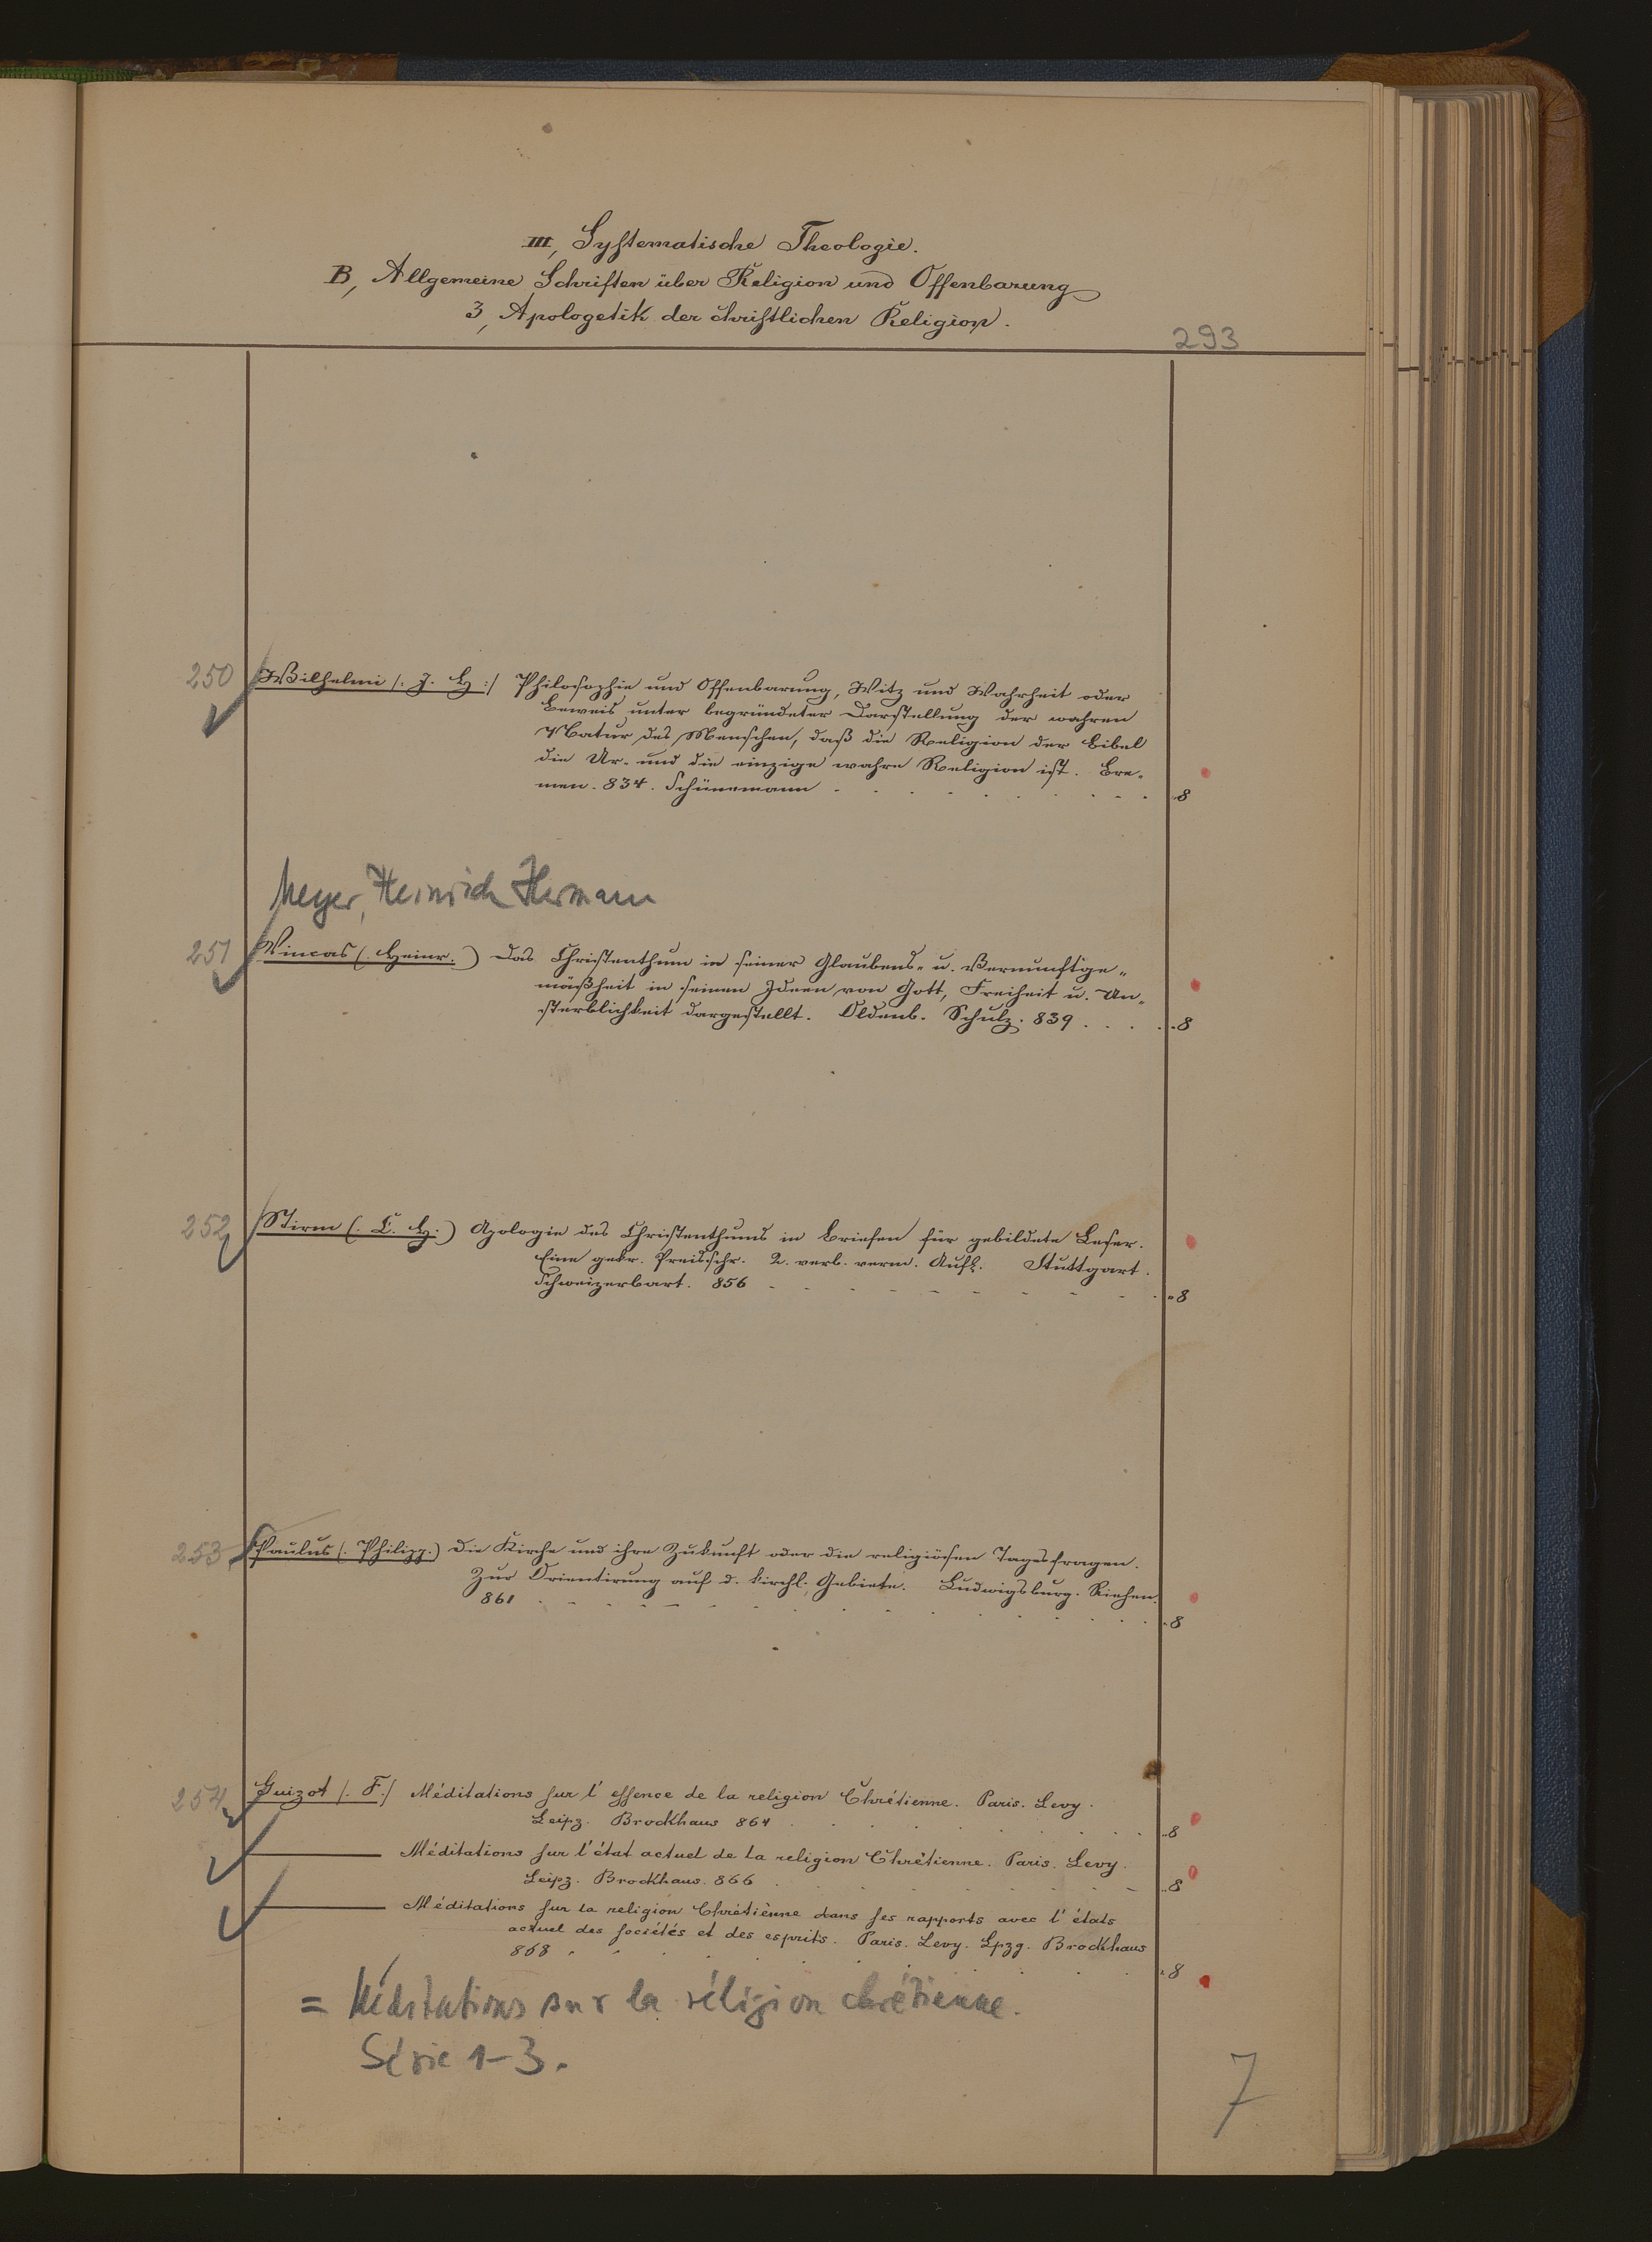 III, Systematische Theologie.
B, Allgemeine Schriften über Religion und Offenbarung
3, Apologetik der christlichen Religion.
293
250 Wilhelmi /: J. H :/ Philosophie und Offenbarung, Witz und Wahrheit oder
Beweis unter begründeter Darstellung der wahren
Natur des Menschen, daß die Religion der Bibel
die Ur- und die einzige wahre Religion ist. Bre-
men. 834. Schünemann 8
Meyer, Heinrich Hermann
251 Vincas (: Heinr. :) Das Christenthum in seiner Glaubens- u. Vernunftge-
mäßheit in seinen Ideen von Gott, Freiheit u. Un-
sterblichkeit dargestellt. Oldenb. Schulz. 839 . . . . 8
252 Stirm (: C. H. :) Apologie des Christenthums in Briefen für gebildete Leser.
Eine gekr. Preisschr. 2. verb. verm. Aufl. Stuttgart.
Schweizerbart. 856 8
253 Paulus (: Philipp. :) Die Kirche und ihre Zukunft oder die religiösen Tagesfragen.
Zur Orientirung auf d. kirchl. Gebiete. Ludwigsburg. Riehm.
861 8
254 Guizot /: F. / Méditations sur l'essence de la religion Chrétienne. Paris. Levy.
Leipz. Brockhaus 864 8
Méditations sur l'état actuel de la religion Chrétienne. Paris. Levy.
Leipz. Brockhaus. 866 8
Méditations sur la religion Chrétiènne dans ses rapports avec l'états
actuel des sociétés et des esprits. Paris. Levy. Lpzg. Brockhaus
868 8
= Méditations sur la réligion chrétienne.
Série 1-3.
7